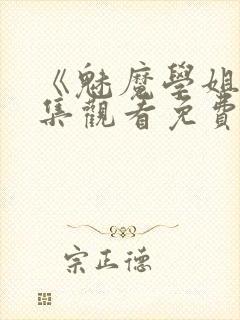 《魅魔學姐
集觀看免費
宗正德